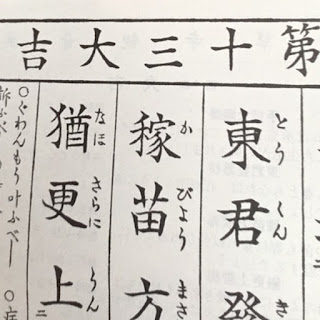 第十三大吉
東君発
とうくんき
稼苗方
かびようまさ
猶更上
なほさらにうん
二
○ぐわんもう叶ふべし
○病